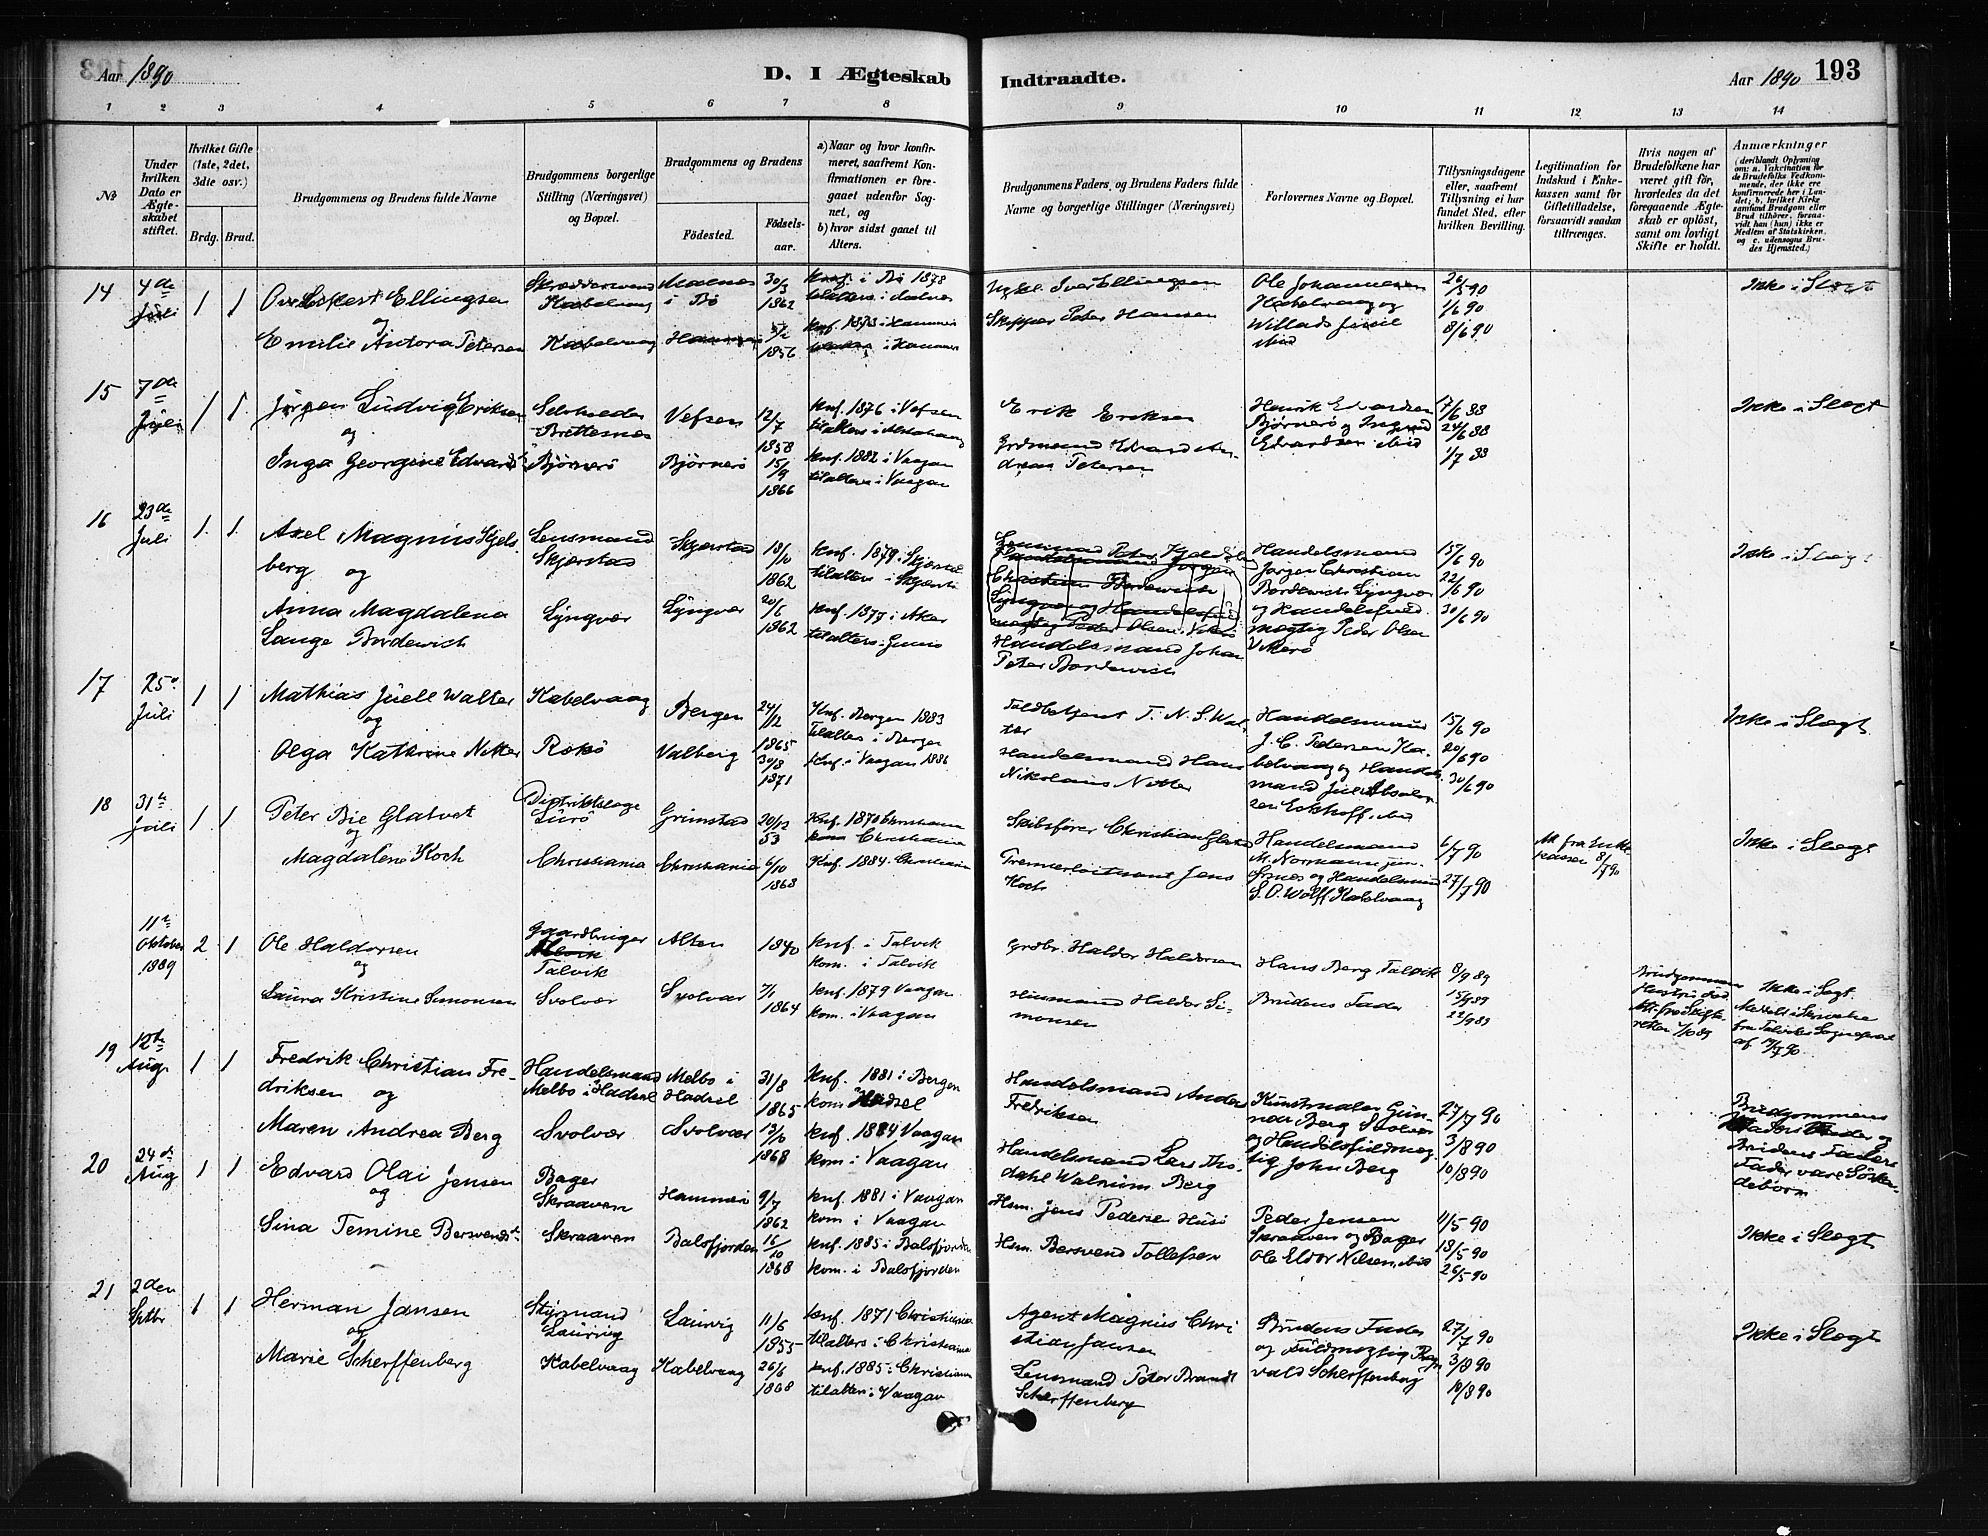 Aar 1890
D. I Ægteskab
Indtraadte.
Aar 1890 193
1 2 3 4 5 6 7 8 9 10 11 12 13 14
№
Under hvilken Dato er Ægteskabet stiftet.
Hvilket Gifte (1ste, 2det, 3die osv.)
Brdg. Brud.
Brudgommens og Brudens fulde Navne
Brudgommens borgerlige Stilling (Næringsvei) og Bopæl.
Brudgommens og Brudens
Fødested.
Fødselsaar.
a) Naar og hvor konfirmeret, saafremt Konfirmationen er foregaaet udenfor Sognet, og
b) hvor sidst gaaet til Alters.
Brudgommens Faders, og Brudens Faders fulde Navne og borgerlige Stillinger (Næringsvei)
Forlovernes Navne og Bopæl.
Tillysningsdagene eller, saafremt Tillysning ei har fundet Sted, efter hvilken Bevilling.
Legitimation for Indskud i Enkekassen samt for Giftetilladelse, forsaavidt saadan tiltrænges.
Hvis nogen af Brudefolkene har været gift før, hvorledes da det foregaaende Ægteskab er opløst, samt om lovligt Skifte er holdt.
Anmærkninger
(deriblandt Oplysning om: a. Vakcination for de Brudefolks Vedkommende, der ikke ere konfirmerede her i Landet; b. hvilket Kirkesamfund Brudgom eller Brud tilhører, forsaavidt han (hun) ikke er Medlem af Statskirken, og c. udensogns Brudes Hjemsted.)
14 4de Juli 1 1
Ellingsen Kabelvaag Malnes i Bø 30/3 1862 Konf. i Bø 1878
og
Emilie Antora Petersen Kabelvaag 1856 Knf. 1873 i Hammer
Iver Ellingsen
Skipper Peter Hansen
Ole Johannesen Kabelvaag og Willads Juul ibid
1/6 90
8/6 90
Ikke i Slægt
15 7de Juli 1 1
Jørgen Ludvig Eriksen Brettesnes Vefsen 12/7 1858 Knf. 1876 i Vefsen
og
Inga Georgine Edvardsd. Bjørnerø Bjørnerø 15/9 1866 Knf. 1882 i Vaagan
tilalters i Vaagan
Erik Eriksen
Grdmand Edvard Andreas Petersen
Henrik Edvardsen Bjørnerø og Edvardsen ibid
17/6 88
24/6 88
1/7 88
Ikke i Slægt
16 23de Juli 1. 1.
Axel Magnus Kjelsberg Lensmand Skjerstad Skjerstad 18/10 1862 Knf. 1879 i Skjerstad
tilalters i Skjerst.
og
Anna Magdalena Lange Bordewich Lyngvær Lyngvær 20/6 1862 Knf. 1877 i Aker
tilalters i Gimsø
Handelsmand Johan Peter Bordewich
Handelsmand Jørgen Christian Bordewich Lyngvær og Handelsfuldmægtig Peder Olsen
15/6 90
22/6 90
30/6 90
Ikke i Slægt
17 25de Juli 1 1
Mathias Juell Walter Kabelvaag Bergen 24/12 1865 Knf. Bergen 1883
Tilalters i Bergen
og
Olga Kathrine Natter Rekø Valberg 30/8 1871 Knf. i Vaagan 1886
Toldbetjent T. N. S. Walter
Handelsmand Hans Nikolaus Natter
Handelsmand J. C. Pedersen Kabelvaag og Handelsmand Juel Absalonsen Eckhoff, ibid
15/6 90
20/6 90
30/6 90
Ikke i Slægt
18 31te Juli 1. 1.
Peter Bie Glatvet Distriktslæge Lurø Grimstad 20/12 53 Knf. 1870 Christiania
kom Christiania
og
Magdalene Koch Christiania Christiania 6/10 1868 Knf. 1884 Christiania
Skibsfører Christian
Premierløitnant Jens Koch
Handelsmand M. Normann jun. Ørsnes og Handelsmand S. O. Wolff Kabelvaag
6/7 90
27/7 90
Att. fra Enkekassen 8/7 90
Ikke i Slægt
11te Oktober 1889 2 1
Ole Haldorsen Gaardbruger Talvik Alten 1840 Knf. i Talvik
kom. i Talvik
og
Laura Kristine Simonsen Svolvær Svolvær 7/1 1864 Knf. 1879 Vaagan
kom. i Vaagan
Grdbr. Haldor Haldorsen
Husmand Haldor Simonsen
Hans Berg Talvik
Brudens Fader
8/9 89
15/9 89
22/9 89
Brudgommens Hustru død. Att. fra Skifteretten 1/10 89
Ikke i Slægt.
Meddelt i Skrivelse fra Talviks Sogneprest af 17/7 90
19 12te Aug. 1 1
Fredrik Christian Fredriksen Handelsmand Melbo i Hadsel Melbo i Hadsel 31/8 1865 Knf. 1881 i Bergen
kom. i Hadsel
og
Maren Andrea Berg Svolvær Svolvær 1868 Knf. 1884 Vaagan
kom i Vaagan
Handelsmand Anders Fredriksen
Handelsmand Lars Thodahl Walnum Berg
Kunstmaler Gunnar Berg Svolvær og Handelsfuldmægtig John Berg
27/7 90
3/8 90
10/8 90
Brudgommens Faders Fader og Brudens Faders Fader vare Søskendebørn
20 24de Aug 1 1
Edvard Olai Jensen Bager Skraaven Hammerø 9/7 1862 Knf. 1881 i Vaagan
kom i Vaagan
og
Sina Temine Bersvendsd. Skraaven Balsfjorden 16/10 1868 Knf. 1885 i Balsfjorden
kom. i Balsfjorden
Hsm. Jens Pedersen
Hsm. Bersvend Tollefsen
Peder Jensen Skraaven og Bager Ole Eldor Nilsen, ibid
11/5 90
18/5 90
26/5 90
Ikke i Slægt
21 2den Septbr 1 1
Herman Jansen Styrmand Laurvig Laurvig 11/6 1855 Knf. 1871 Christiania
tilalters i Christiania
og
Marie Scherffenberg Kabelvaag Kabelvaag 26/6 1868 Knf. 1885 i Christiania
tilalters i Vaagan
Agent Magnus Christian Jansen
Lensmand Peter Brandt Scherffenberg
Brudens Fader og Fuldmægtig Ragnvald Scherffenberg
27/7 90
3/8 90
10/8 90
Ikke i Slægt